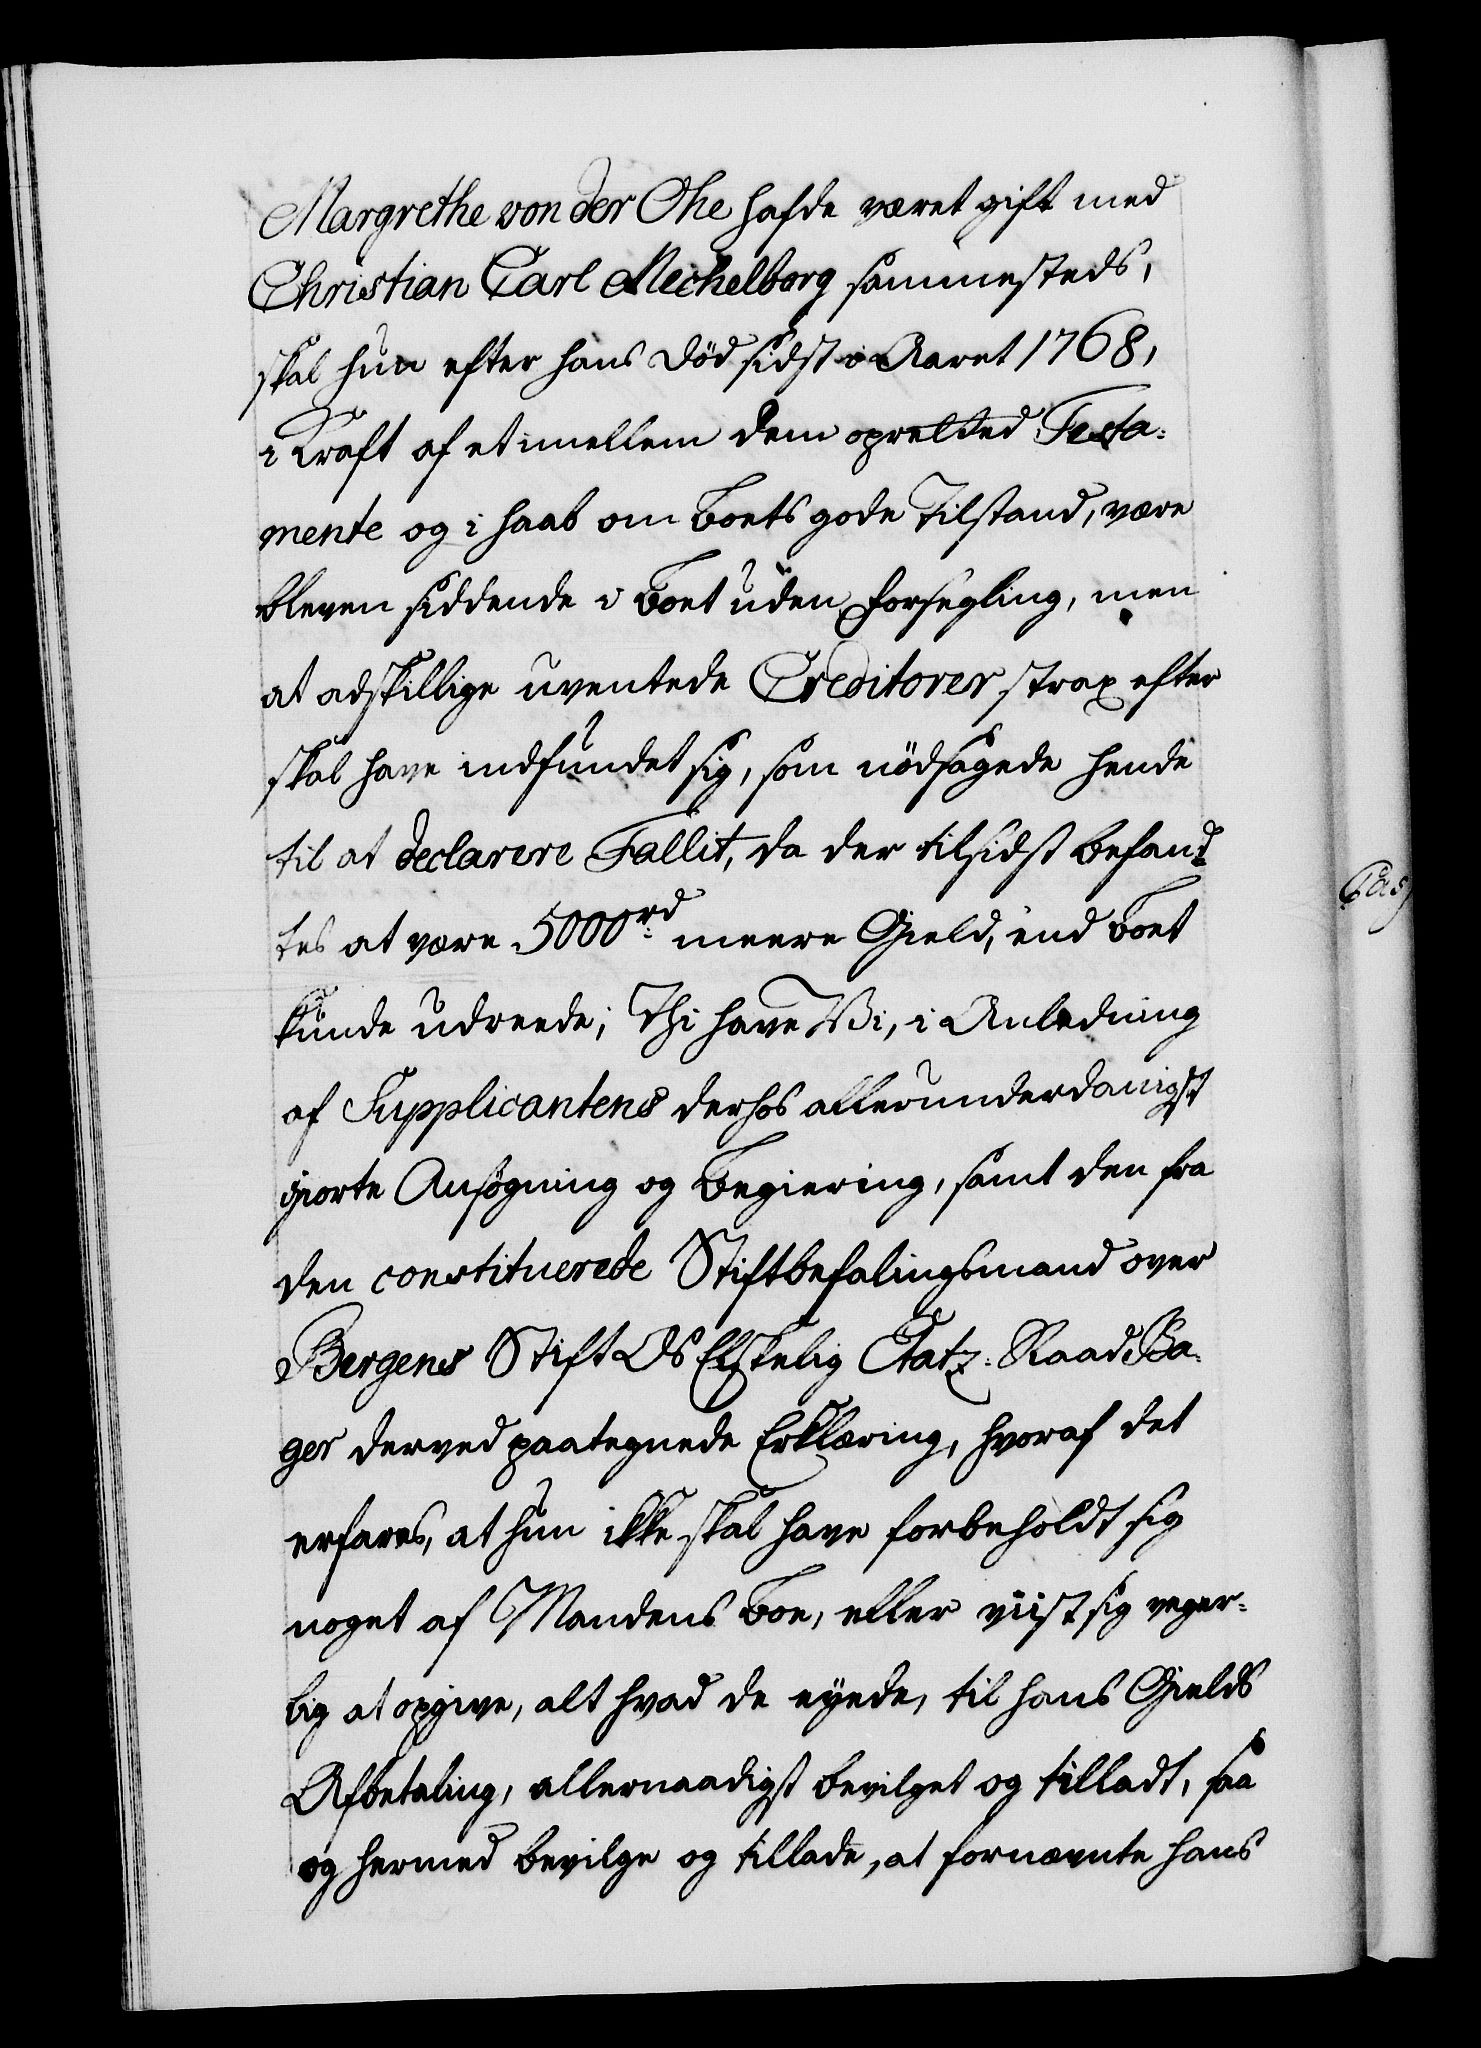 Margrethe von der Ohe hafde været gift med
Christian Carl Mechelborg sammesteds,
skal hun efter hans Död sidst i Aaret 1768,
i Kraft af et imellem dem opretted Testa-
mente og i Haab om Boets gode Tilstand, være
bleven siddende i Boet uden Forsegling, men
at adskillige uventede Creditorer strax efter
skal have indfundet sig, som nödsagede hende
til at declarere Fallit, da der tilsidst befand-
tes at være 5000rd meere Gield, end Boet
kunde udreede; Thi have Vi, i Anledning
af Supplicantens derhos allerunderdanigst
giorte Ansögning og Begiering, samt den fra
den constituerede Stiftbefalingsmand over
Bergens Stift Os Elskelig Etatz-Raad Ba-
ger derved paategnede Erklæring, hvoraf det
erfares, at hun ikke skal have forbeholdt sig
noget af Mandens Boe, eller viist sig veger-
lig at opgive, alt hvad de eyede, til hans Gields
Afbetaling, allernaadigst bevilget og tilladt, saa
og hermed bevilge og tillade, at fornævnte hans